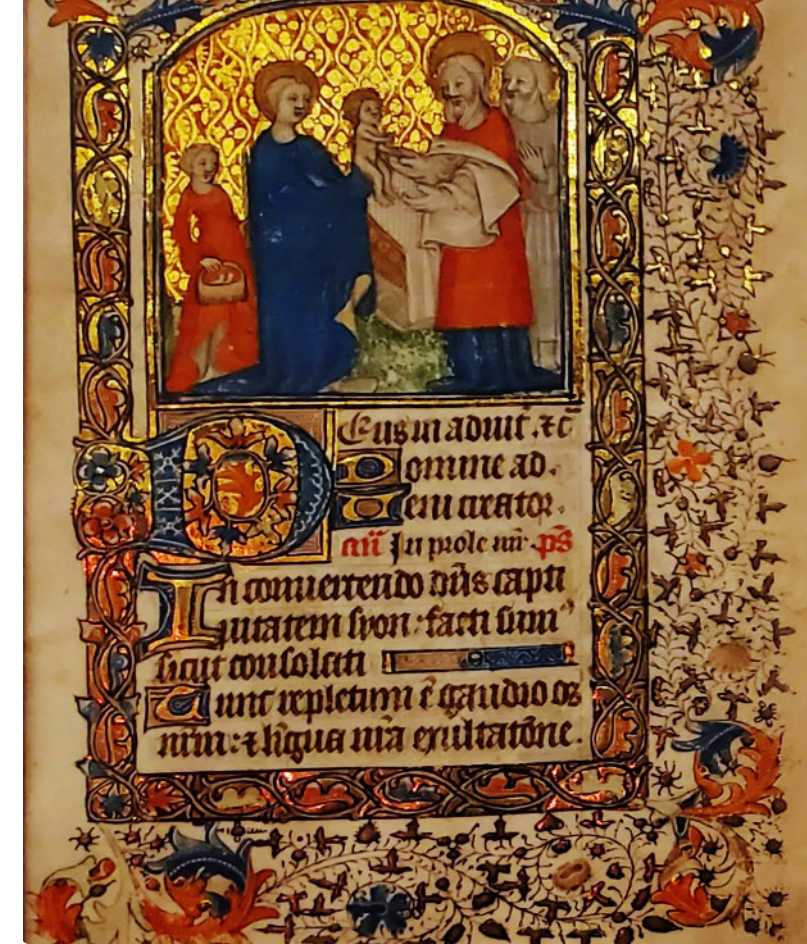 Deus in adiut̄. ⁊c̄
Domine ad.
Ueni creator.
añ In prole mr̄ . ps̄
In conuertendo dn̄s capti
uitatem syon : facti sum⁹
sicut consolati
Tunc repletum ē gaudio os
nr̄m : ⁊ ligua nr̄a exultatōne.